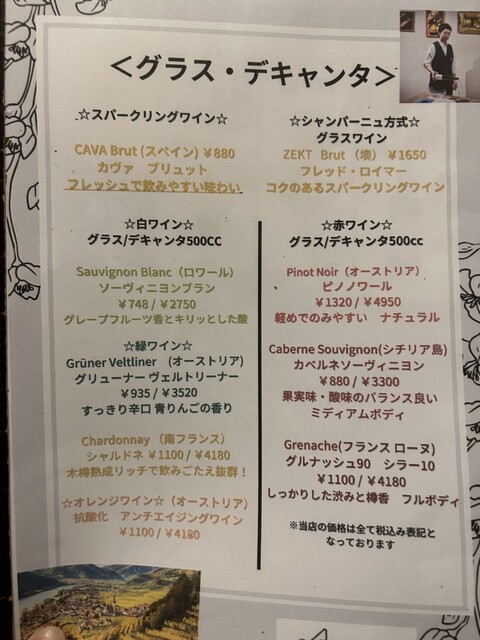 ＜グラス・デキャンタ＞
☆スパークリングワイン☆
CAVA Brut (スペイン) ￥880
カヴァ　ブリュット
フレッシュで飲みやすい味わい
☆シャンパーニュ方式☆
グラスワイン
ZEKT Brut （墺） ￥1650
フレッド・ロイマー
コクのあるスパークリングワイン
☆白ワイン☆
グラス/デキャンタ500CC
Sauvignon Blanc（ロワール）
ソーヴィニヨンブラン
￥748 / ￥2750
グレープフルーツ香とキリッとした酸
☆緑ワイン☆
Grüner Veltliner　(オーストリア)
グリューナー ヴェルトリーナー
￥935 / ￥3520
すっきり辛口 青りんごの香り
Chardonnay（南フランス）
シャルドネ ￥1100 / ￥4180
木樽熟成リッチで飲みごたえ抜群！
☆オレンジワイン☆（オーストリア）
抗酸化　アンチエイジングワイン
￥1100 / ￥4180
☆赤ワイン☆
グラス/デキャンタ500cc
Pinot Noir（オーストリア）
ピノノワール
￥1320 / ￥4950
軽めでのみやすい　ナチュラル
Caberne Souvignon(シチリア島)
カベルネソーヴィニヨン
￥880 / ￥3300
果実味・酸味のバランス良い
ミディアムボディ
Grenache(フランス ローヌ)
グルナッシュ90　シラー10
￥1100 / ￥4180
しっかりした渋みと樽香　フルボディ
※当店の価格は全て税込み表記と
なっております